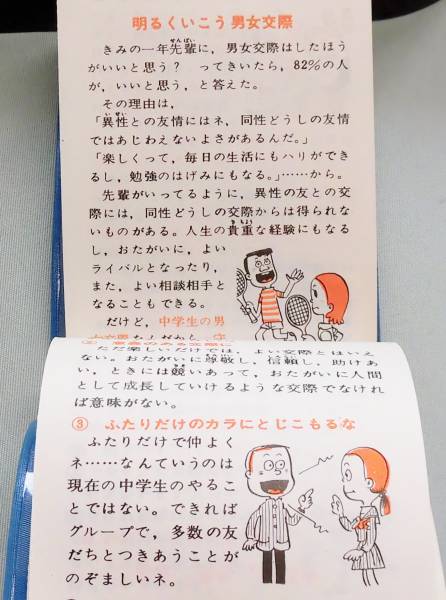 明るくいこう男女交際
きみの一年先輩に，男女交際はしたほう
がいいと思う？　ってきいたら，82%の人
が，いいと思う，と答えた。
その理由は，
「異性との友情にはネ，同性どうしの友情
ではあじわえないよさがあるんだ。」
「楽しくって，毎日の生活にもハリができ
るし，勉強のはげみにもなる。」……から。
先輩がいってるように，異性の友との交
際には，同性どうしの交際からは得られな
いものがある。人生の貴重な経験にもなる
し，おたがいに，よい
ライバルとなったり，
また，よい相談相手と
なることもできる。
だけど，中学生の男
ただ楽しいだけでは，よい交際とはいえ
ない。おたがいに尊敬し，信頼し，助けあ
い，ときには競いあって，おたがいに人間
として成長していけるような交際でなけれ
ば意味がない。
③ ふたりだけのカラにとじこもるな
ふたりだけで仲よく
ネ……なんていうのは
現在の中学生のやるこ
とではない。できれば
グループで，多数の友
だちとつきあうことが
のぞましいネ。